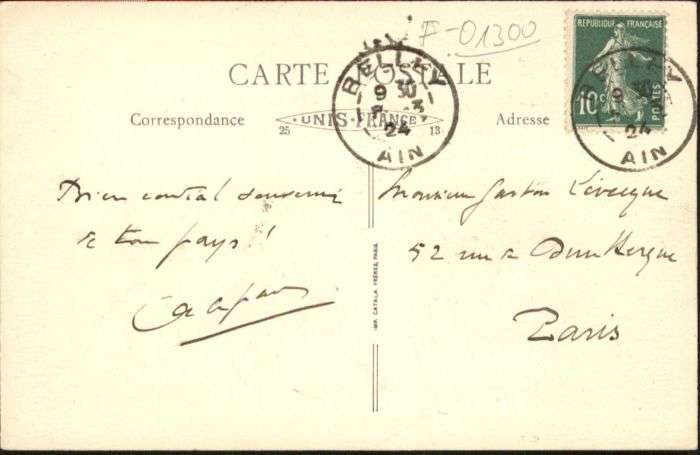 F-01300
CARTE POSTALE
RÉPUBLIQUE FRANÇAISE
10c
POSTES
BELLEY
9 30
24
AIN
9 30
24
AIN
Correspondance
UNIS-FRANCE
25 13
Adresse
Bien cordial souvenir
de ton pays !
Monsieur Gaston Lévecque
52 rue de Dunkerque
Paris
IMP. CATALA FRÈRES, PARIS